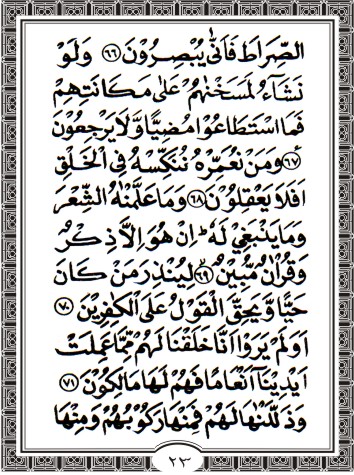 الصِّرَاطَ فَاَنّٰى يُبْصِرُوْنَ ﴿٦٦﴾ وَلَوْ
نَشَآءُ لَمَسَخْنٰهُمْ عَلٰى مَكَانَتِهِمْ
فَمَا اسْتَطَاعُوْا مُضِيًّا وَّلَا يَرْجِعُوْنَ
﴿٦٧﴾ وَمَنْ نُّعَمِّرْهُ نُنَكِّسْهُ فِى الْخَلْقِ
اَفَلَا يَعْقِلُوْنَ ﴿٦٨﴾ وَمَا عَلَّمْنٰهُ الشِّعْرَ
وَمَا يَنْبَغِيْ لَهٗ اِنْ هُوَ اِلَّا ذِكْرٌ
وَّقُرْاٰنٌ مُّبِيْنٌ ﴿٦٩﴾ لِّيُنْذِرَ مَنْ كَانَ
حَيًّا وَّيَحِقَّ الْقَوْلُ عَلَى الْكٰفِرِيْنَ ﴿٧٠﴾
اَوَلَمْ يَرَوْا اَنَّا خَلَقْنَا لَهُمْ مِّمَّا عَمِلَتْ
اَيْدِيْنَآ اَنْعَامًا فَهُمْ لَهَا مَالِكُوْنَ ﴿٧١﴾
وَذَلَّلْنٰهَا لَهُمْ فَمِنْهَا رَكُوْبُهُمْ وَمِنْهَا
٢٣